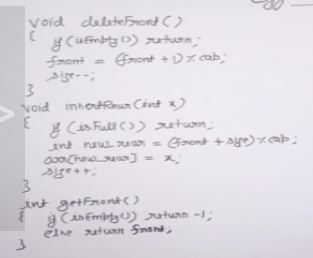 void deleteFront()
{
if (isEmpty()) return;
front = (front + 1) % cap;
size--;
}
void insertRear(int x)
{
if (isFull()) return;
int new_rear = (front + size) % cap;
arr[new_rear] = x;
size++;
}
int getFront()
{
if (isEmpty()) return -1;
else return front;
}